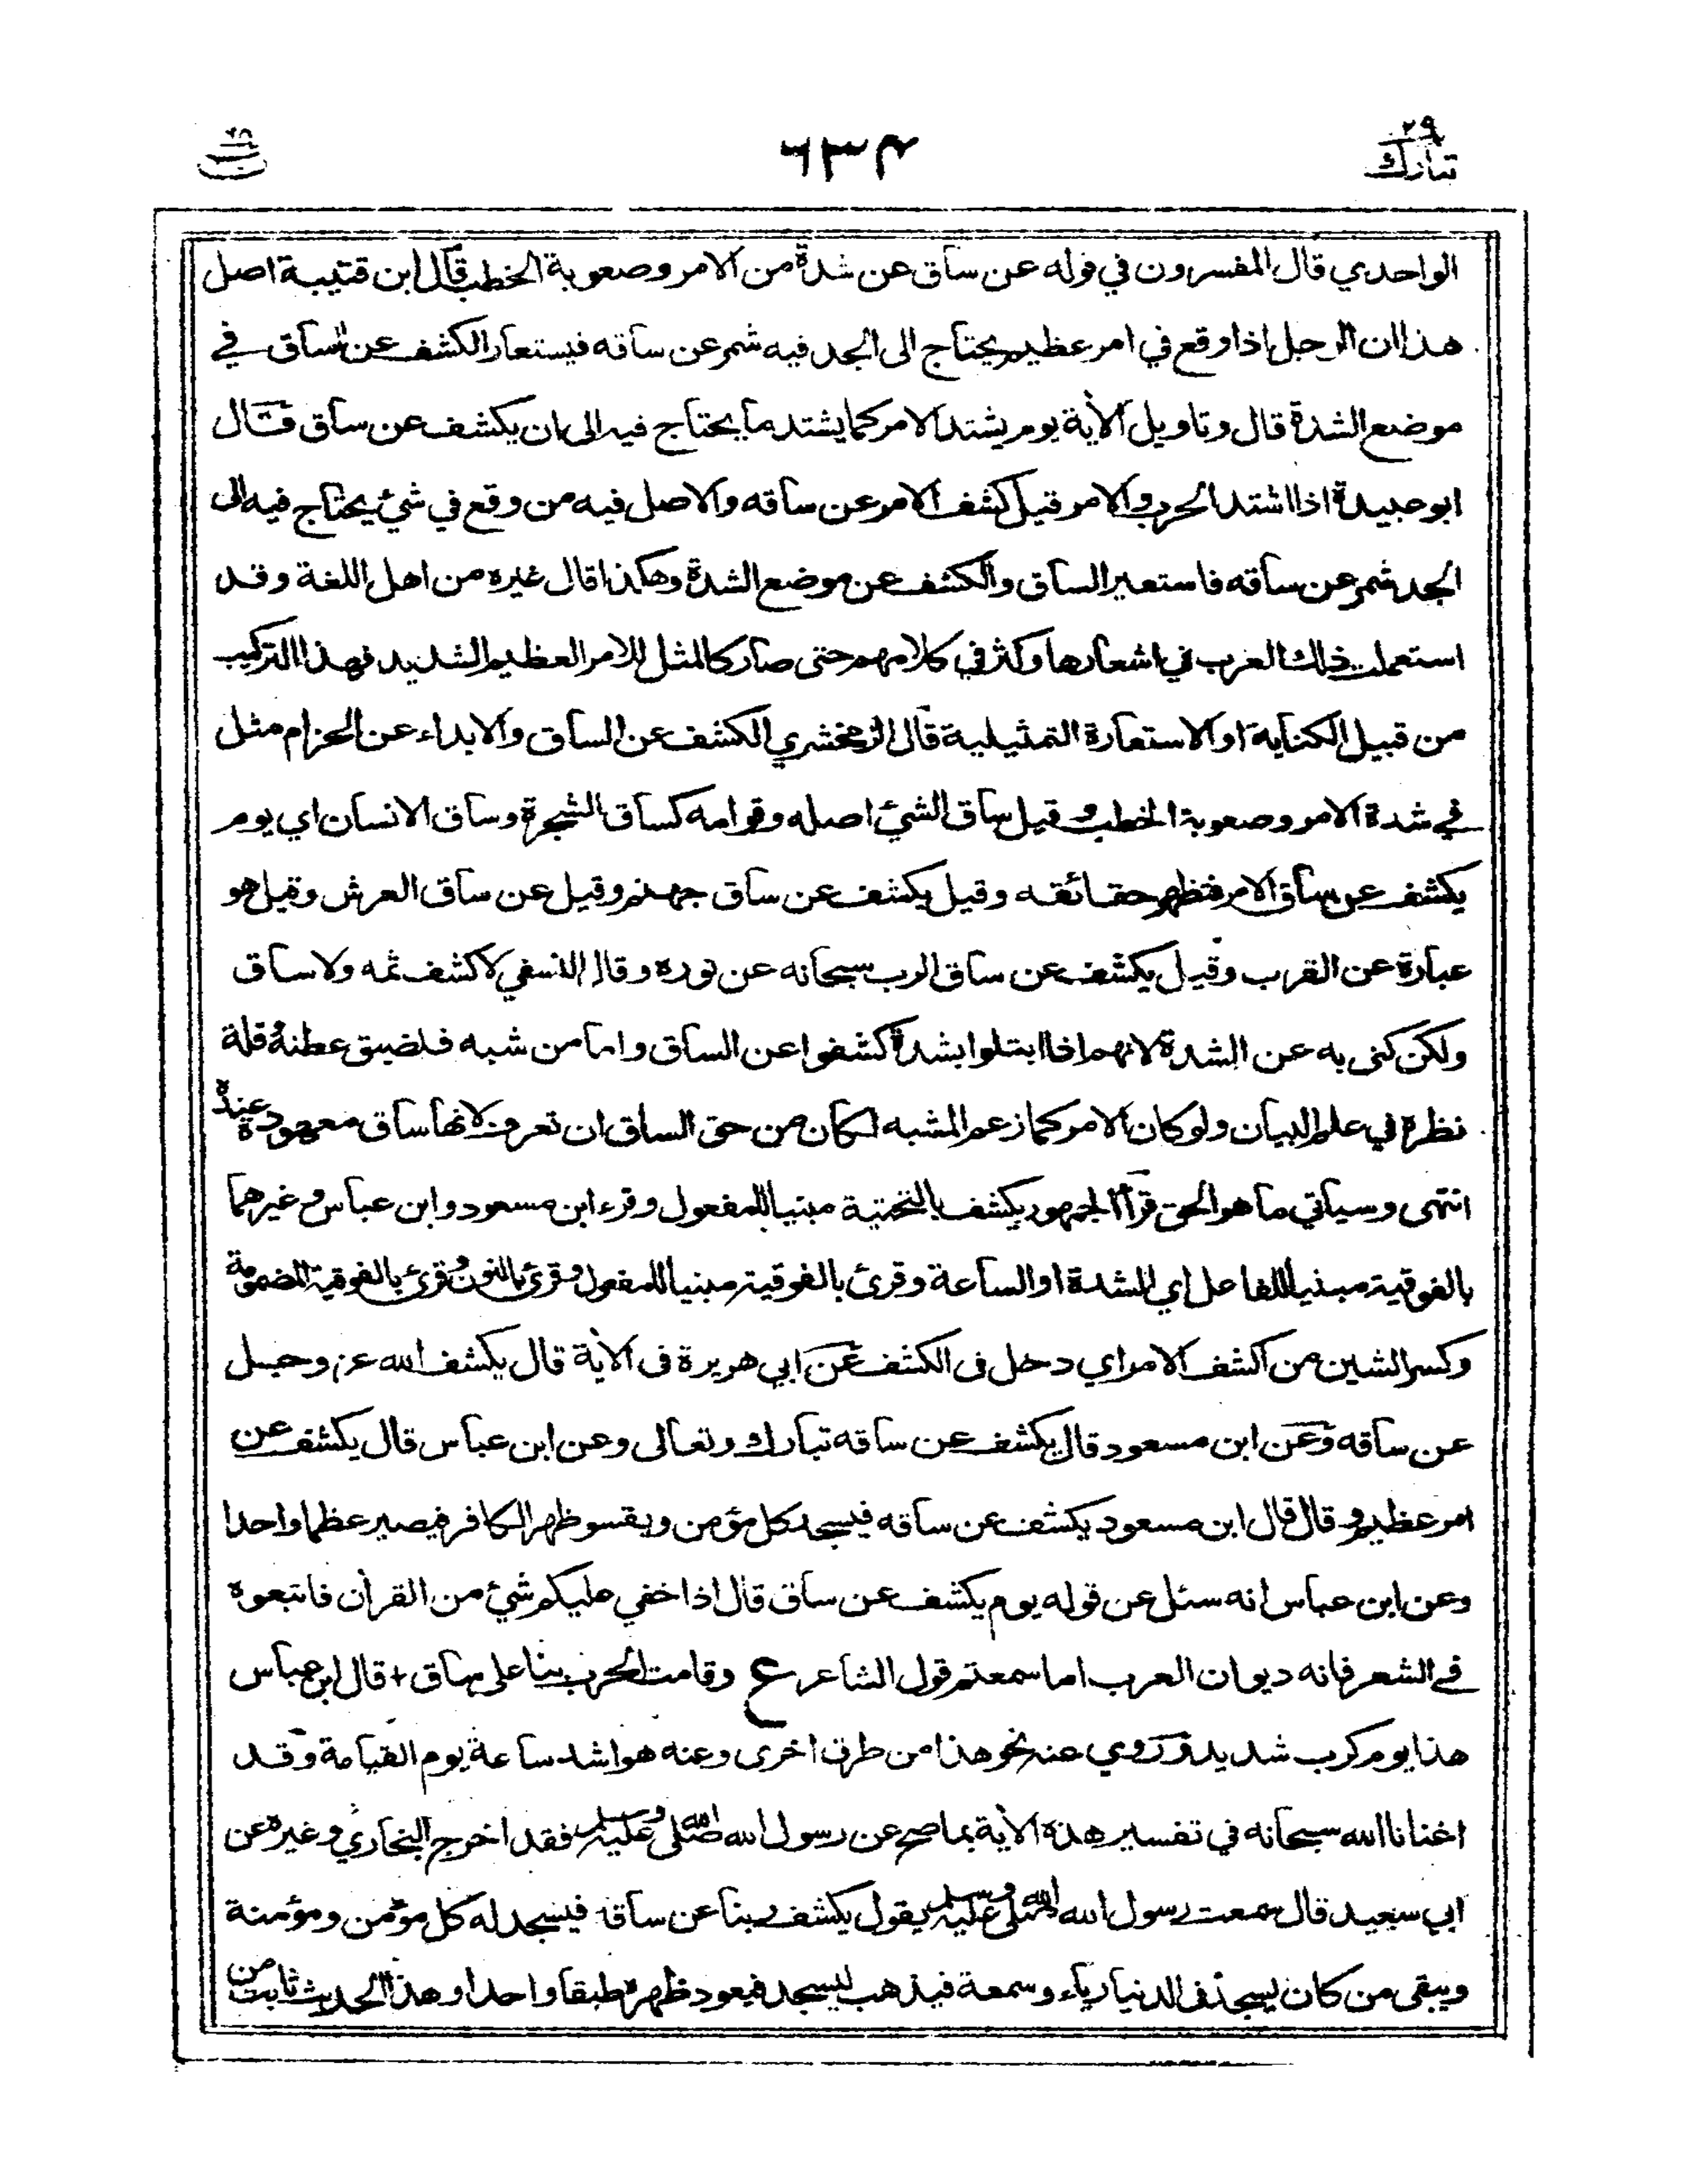 تبارك ٢٩
٦٣٤
ن ٦٨
الواحدي قال المفسرون في قوله عن ساق عن شدة من الامر وصعوبة الخطب قال ابن قتيبة اصل
هذا ان الرجل اذا وقع في امر عظيم يحتاج الى الجد فيه شمر عن ساقه فيستعار الكشف عن الساق في
موضع الشدة قال وتاويل الأية يوم يشتد الامر كما يشتد ما يحتاج فيه الى ان يكشف عن ساق قال
ابو عبيدة اذا اشتد الحرب والامر قيل كشف الامر عن ساقه والاصل فيه من وقع في شيء يحتاج فيه الى
الجد شمر عن ساقه فاستعير الساق والكشف عن موضع الشدة وهكذا قال غيره من اهل اللغة وقد
استعملت ذلك العرب في اشعارها وكثر في كلامهم حتى صار كالمثل للامر العظيم الشديد فهذا التركيب
من قبيل الكناية او الاستعارة التمثيلية قال الزمخشري الكشف عن الساق والابداء عن الحزام مثل
في شدة الامر وصعوبة الخطب و قيل ساق الشيء اصله وقوامه كساق الشجرة وساق الانسان اي يوم
يكشف عن ساق الامر فتظهر حقائقه وقيل يكشف عن ساق جهنم وقيل عن ساق العرش وقيل هو
عبارة عن القرب وقيل يكشف عن ساق الرب سبحانه عن نوره وقال النسفي لا كشف ثمه ولا ساق
ولكن كنى به عن الشدة لانهم اذا ابتلوا بشدة كشفوا عن الساق واما من شبه فلضيق عطنه وقلة
نظره في علم البيان ولو كان الامر كما زعم المشبه لكان من حق الساق ان تعرف لانها ساق معهودة عنده
انتهى وسيأتي ما هو الحق قرأ الجمهور يكشف بالتحتية مبنيا للمفعول وقرء ابن مسعود وابن عباس وغيرهما
بالفوقية مبنيا للفاعل اي الشدة او الساعة وقرئ بالفوقية مبنيا للمفعول وقرئ بالنون وقرئ بالفوقية المضمومة
وكسر الشين من اكشف الامر اي دخل فى الكشف عن ابي هريرة فى الأية قال يكشف الله عز وجل
عن ساقه وعن ابن مسعود قال يكشف عن ساقه تبارك وتعالى وعن ابن عباس قال يكشف عن
امر عظيم و قال قال ابن مسعود يكشف عن ساقه فيسجد كل مؤمن ويقسو ظهر الكافر فيصير عظما واحدا
وعن ابن عباس انه سئل عن قوله يوم يكشف عن ساق قال اذا خفي عليكم شيء من القرأن فاتبعوه
في الشعر فانه ديوان العرب اما سمعتم قول الشاعر ع وقامت الحرب بنا على ساق + قال ابن عباس
هذا يوم كرب شديد وروي عنه نحو هذا من طرق اخرى وعنه هو اشد ساعة يوم القيامة وقد
اغنانا الله سبحانه في تفسير هذه الأية بما صح عن رسول الله صلى الله عليه وسلم فقد اخرج البخاري وغيره عن
ابي سعيد قال سمعت رسول الله صلى الله عليه وسلم يقول يكشف ربنا عن ساقه فيسجد له كل مؤمن ومؤمنة
ويبقى من كان يسجد فى الدنيا رياء وسمعة فيذهب ليسجد فيعود ظهره طبقا واحدا وهذا الحديث ثابت من